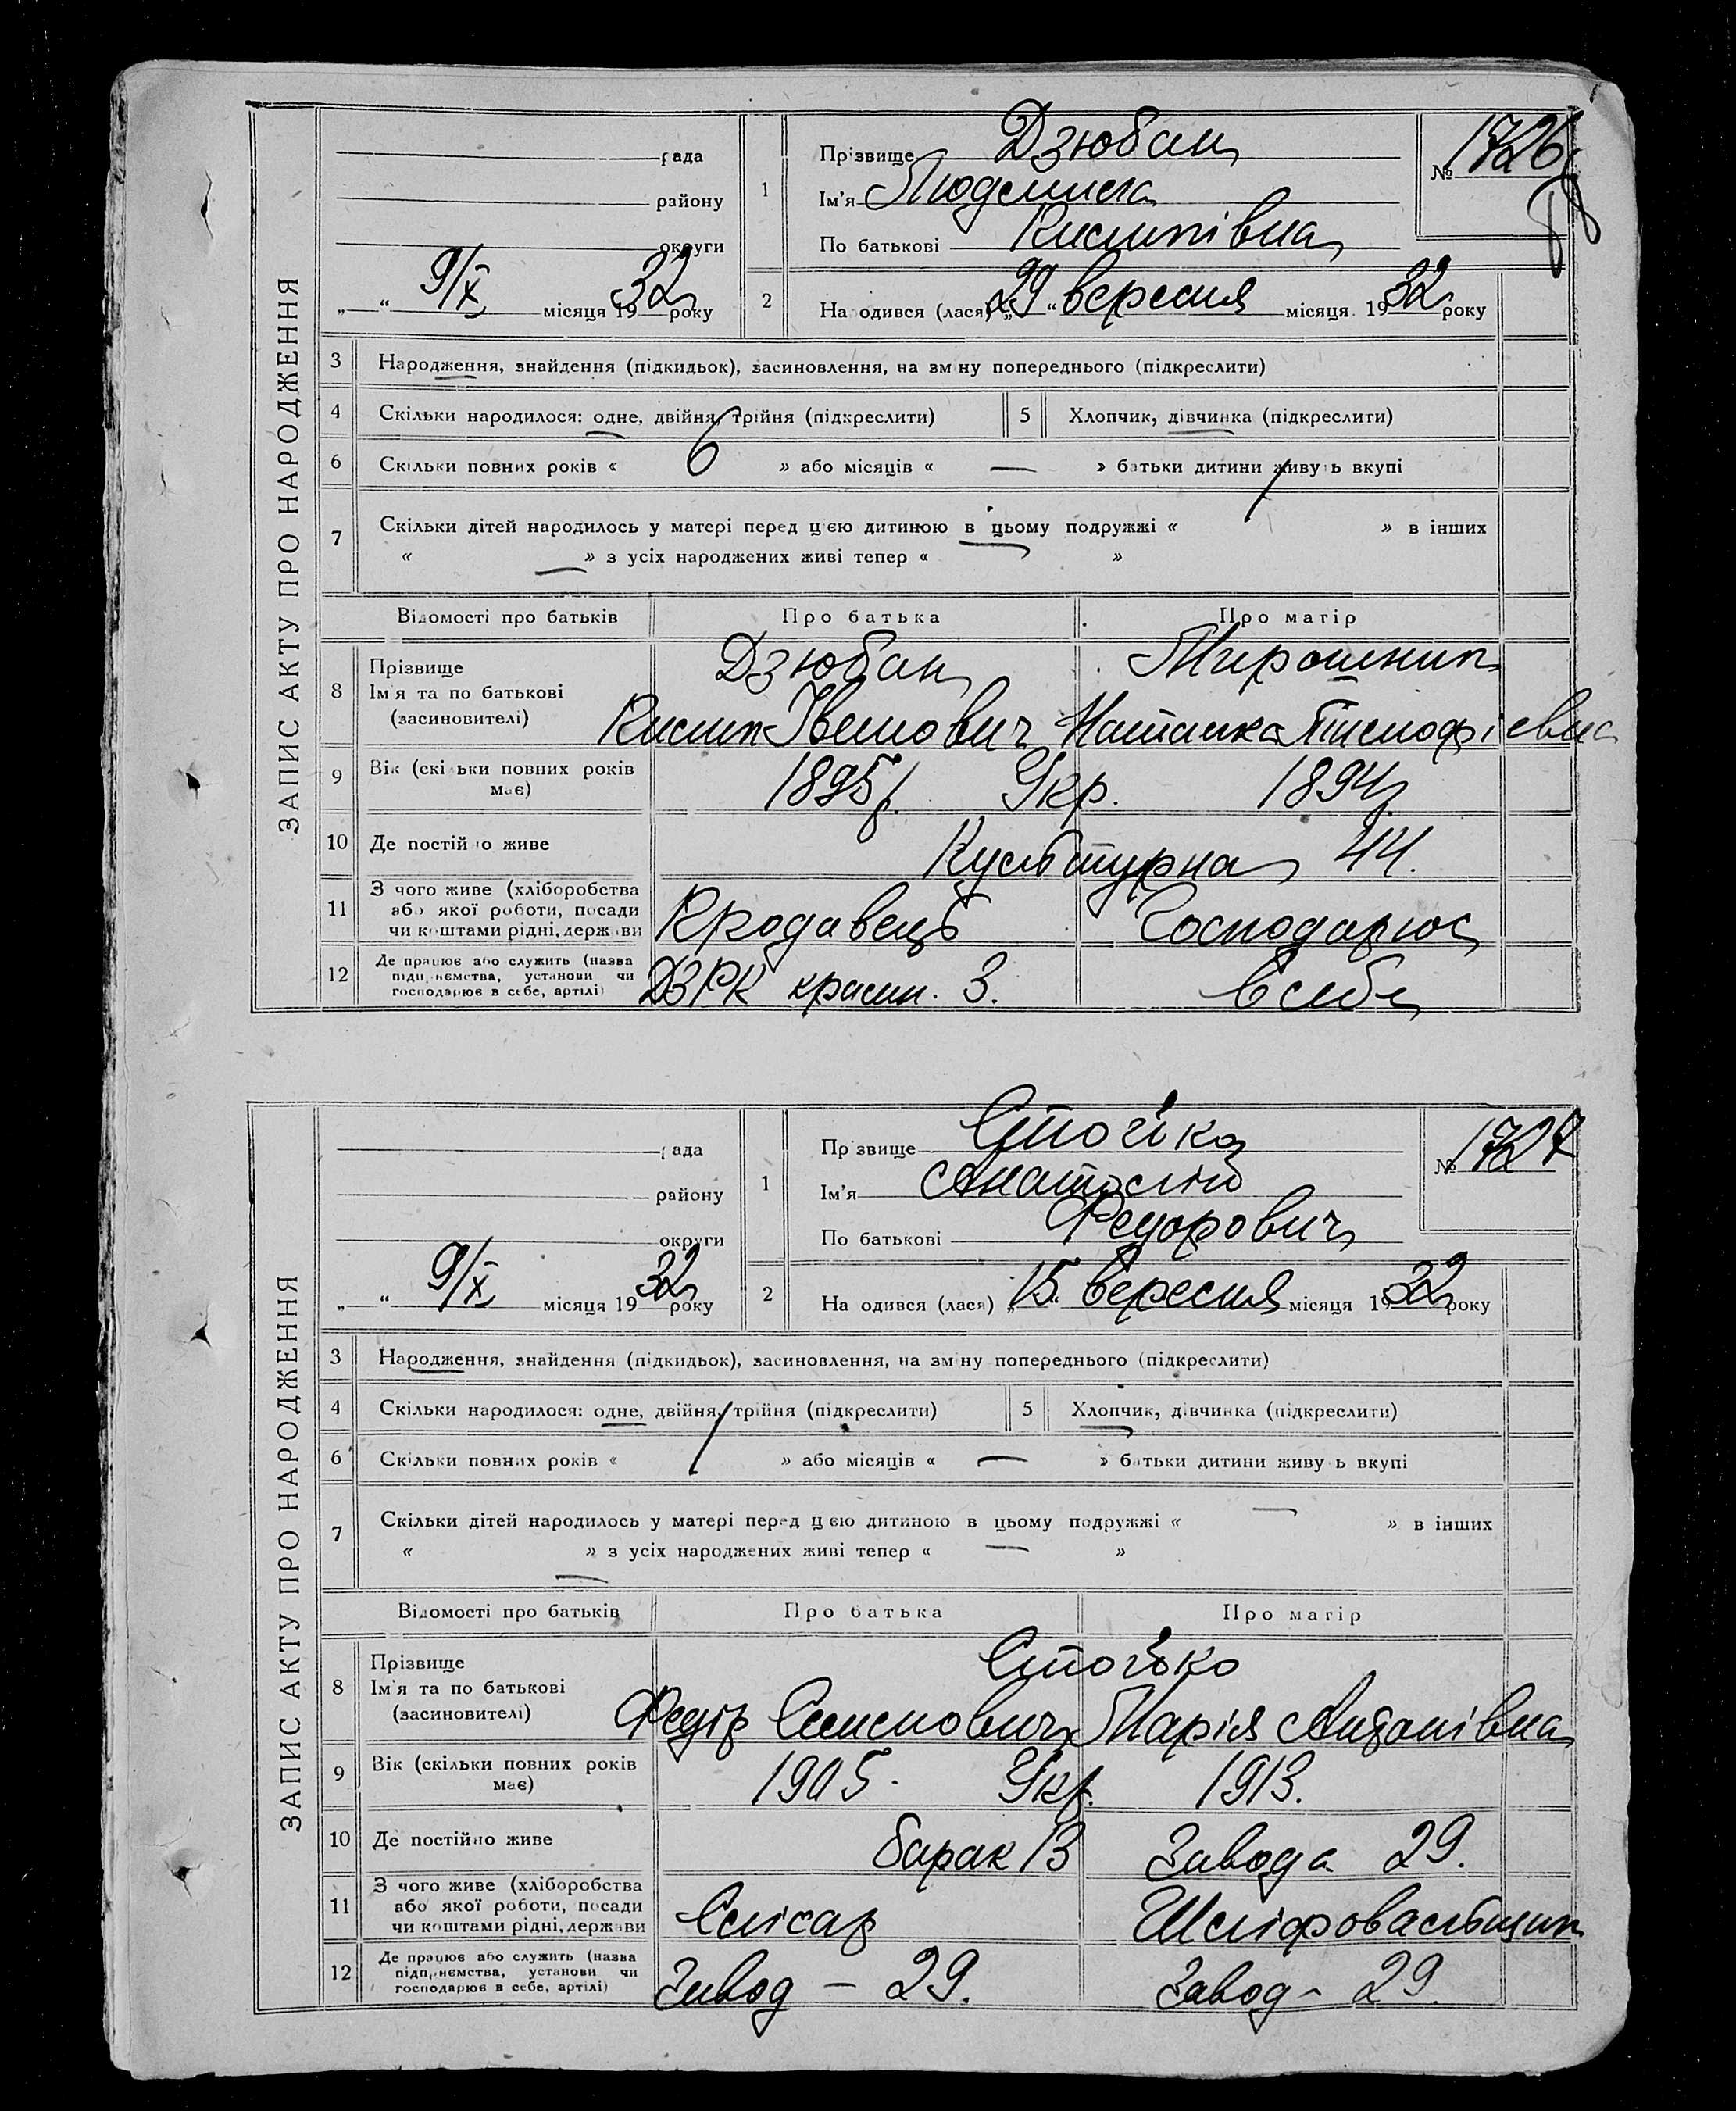 ЗАПИС АКТУ ПРО НАРОДЖЕННЯ
рада
району
округи
„ “ 9/X місяця 1932 року
1 Прізвище Дзюбан
Ім'я Людмила
По батькові Килипівна
№ 1726
2 Народився (лася) „29“ вересня місяця 1932 року
3 Народження, знайдення (підкидьок), засиновлення, на зміну попереднього (підкреслити)
4 Скільки народилося: одне, двійня, трійня (підкреслити) 5 Хлопчик, дівчинка (підкреслити)
6 Скільки повних років « 6 » або місяців « — » батьки дитини живуть вкупі
7 Скільки дітей народилось у матері перед цією дитиною в цьому подружжі « 1 » в інших
« — » з усіх народжених живі тепер « — »
Відомості про батьків Про батька Про матір
8 Прізвище Дзюбан Мирошник
Ім'я та по батькові
(засиновителі) Килип Іванович Наталка Тимофієвна
9 Вік (скільки повних років 1895 р. Укр. 1894 р.
має)
10 Де постійно живе Культурна 44.
11 З чого живе (хліборобства
або якої роботи, посади
чи коштами рідні, держави Продавець Господарює
12 Де працює або служить (назва
підприємства, установи чи
господарює в себе, артілі) ДЗРК крамн. 3. в себе
ЗАПИС АКТУ ПРО НАРОДЖЕННЯ
рада
району
округи
„ “ 9/X місяця 1932 року
1 Прізвище Стогька
Ім'я Анатолій
По батькові Федорович
№ 1727
2 Народився (лася) „15“ вересня місяця 1932 року
3 Народження, знайдення (підкидьок), засиновлення, на зміну попереднього (підкреслити)
4 Скільки народилося: одне, двійня, трійня (підкреслити) 5 Хлопчик, дівчинка (підкреслити)
6 Скільки повних років « 1 » або місяців « — » батьки дитини живуть вкупі
7 Скільки дітей народилось у матері перед цією дитиною в цьому подружжі « — » в інших
« — » з усіх народжених живі тепер « — »
Відомості про батьків Про батька Про матір
8 Прізвище Стогько
Ім'я та по батькові
(засиновителі) Федір Семенович Марія Антонівна
9 Вік (скільки повних років 1905. Укр. 1913.
має)
10 Де постійно живе барак 13 Завода 29.
11 З чого живе (хліборобства
або якої роботи, посади
чи коштами рідні, держави Слісар Шліфовальщик
12 Де працює або служить (назва
підприємства, установи чи
господарює в себе, артілі) Завод – 29. Завод – 29.